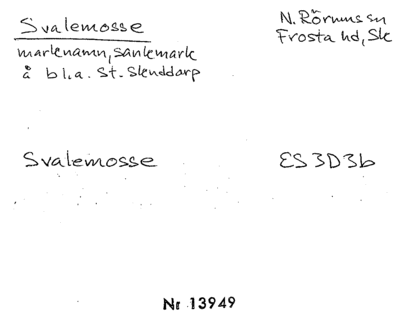 Svalemosse
N. Rörums sn
Frosta hd, Sk
marknamn, sankmark
å bl.a. St. Slenddarp
Svalemosse
ES3D3b
Nr 13949